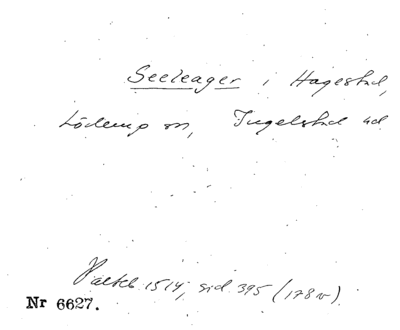 Seeleager i Hagestad,
Löderup sn, Ingelstad hd
Pallhl 1514, sid 395 (178 v)
Nr 6627.